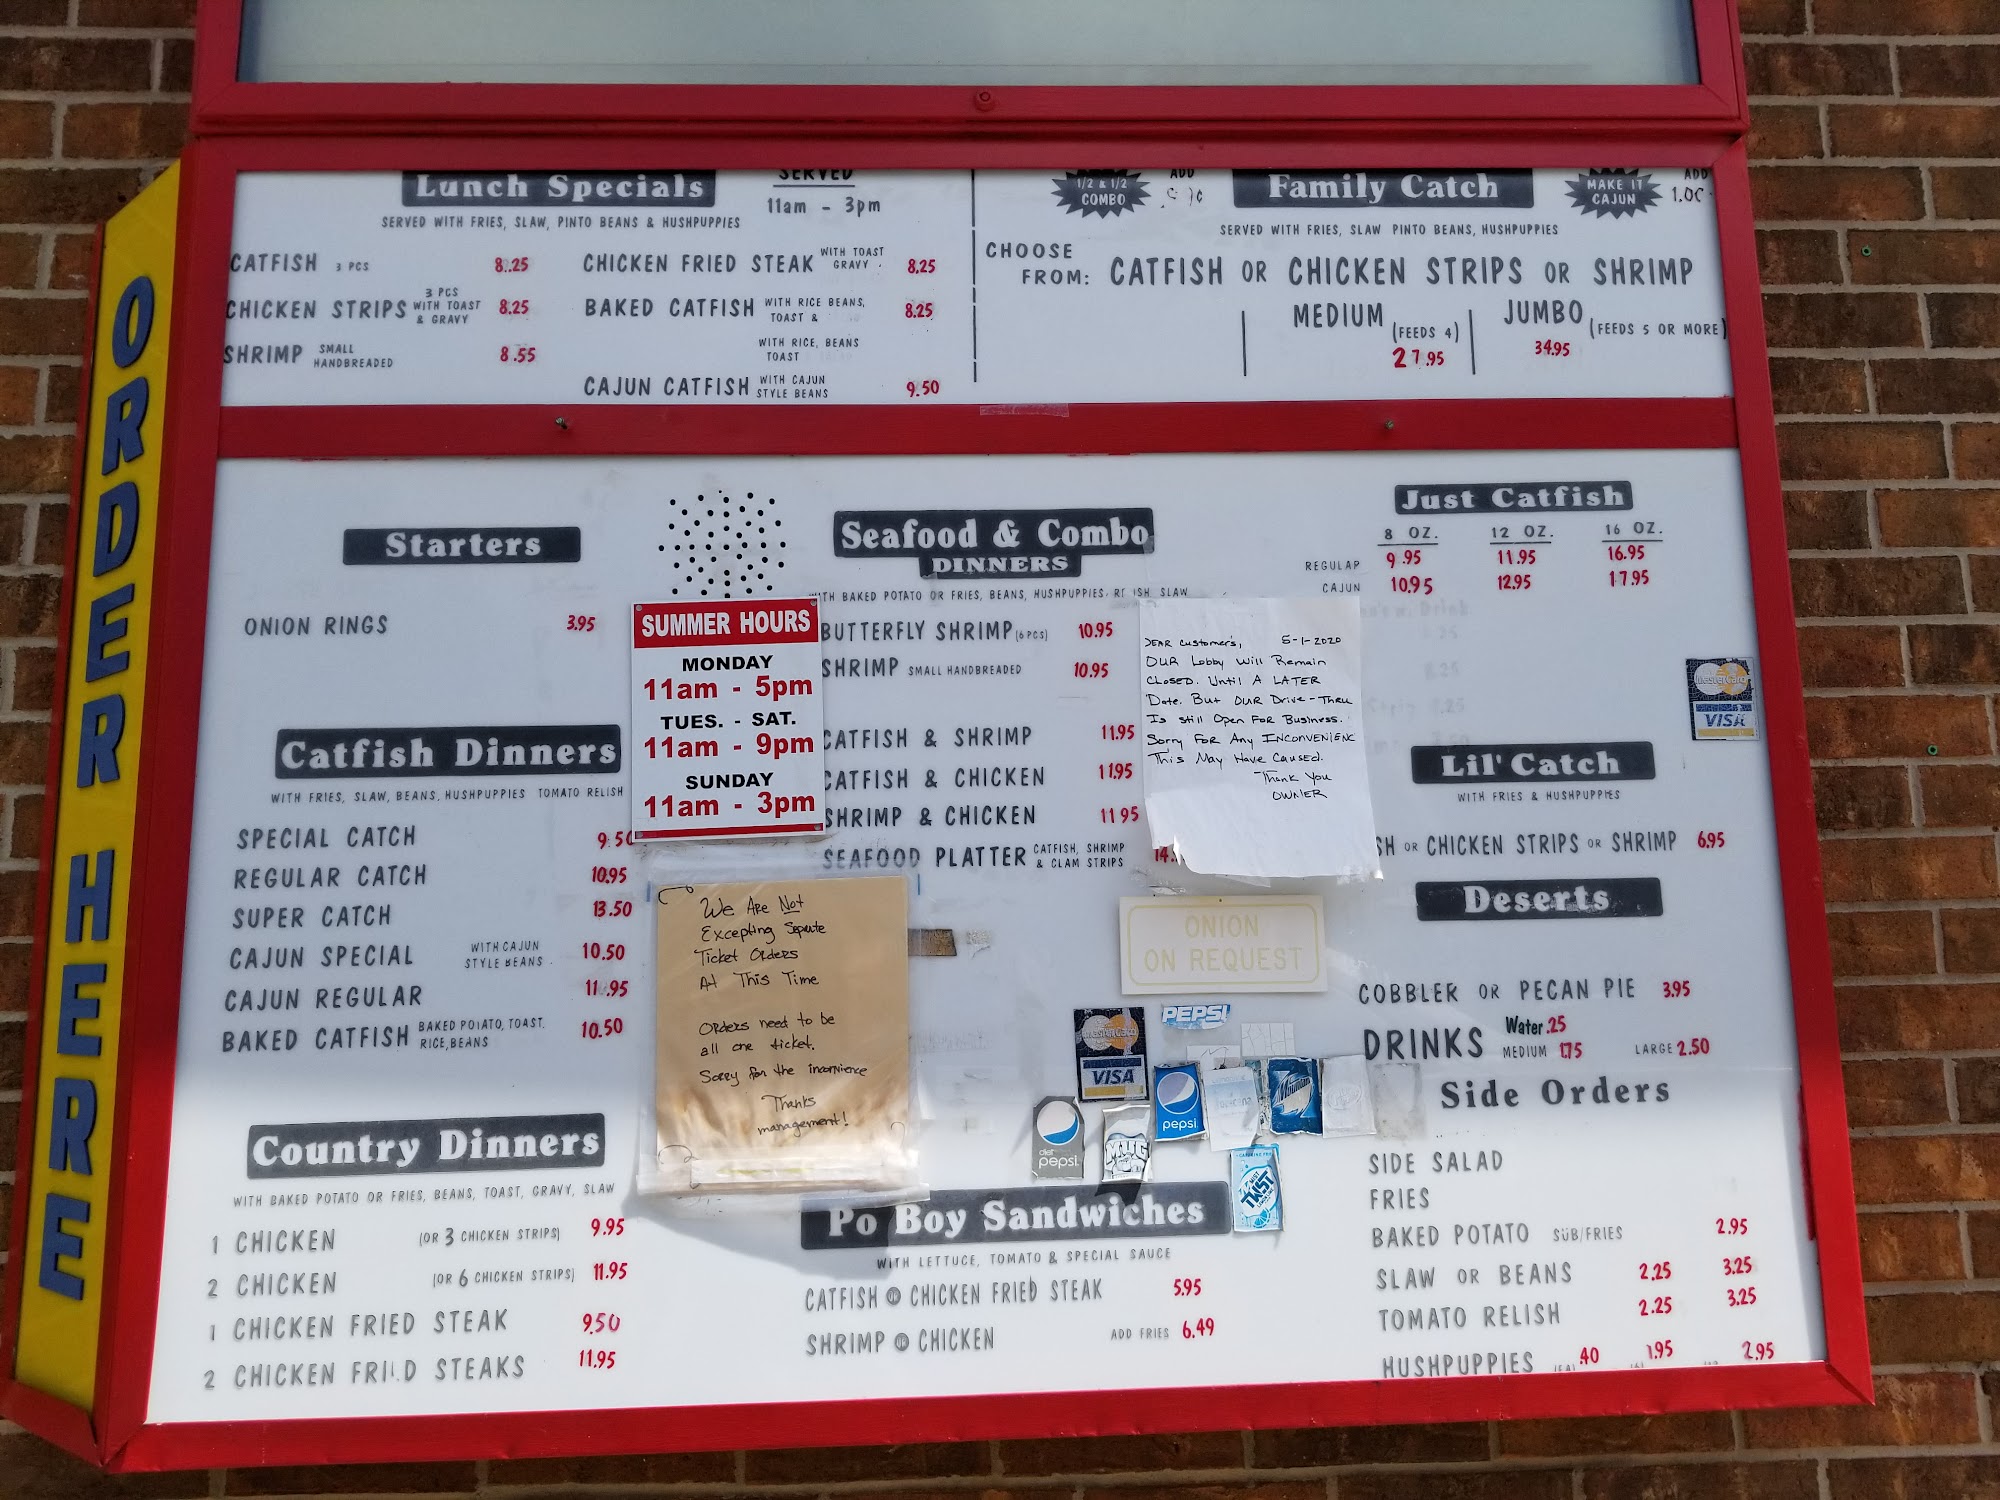 ORDER HERE
Lunch Specials
SERVED
11am - 3pm
SERVED WITH FRIES, SLAW, PINTO BEANS & HUSHPUPPIES
CATFISH 3 PCS 8.25
CHICKEN STRIPS 3 PCS WITH TOAST & GRAVY 8.25
SHRIMP SMALL HANDBREADED 8.55
CHICKEN FRIED STEAK WITH TOAST GRAVY 8.25
BAKED CATFISH WITH RICE BEANS, TOAST & 8.25
WITH RICE, BEANS TOAST
CAJUN CATFISH WITH CAJUN STYLE BEANS 9.50
1/2 & 1/2 COMBO ADD
Family Catch
MAKE IT CAJUN ADD 1.00
SERVED WITH FRIES, SLAW PINTO BEANS, HUSHPUPPIES
CHOOSE FROM: CATFISH OR CHICKEN STRIPS OR SHRIMP
MEDIUM (FEEDS 4) 27.95
JUMBO (FEEDS 5 OR MORE) 34.95
Starters
ONION RINGS 3.95
Catfish Dinners
WITH FRIES, SLAW, BEANS, HUSHPUPPIES TOMATO RELISH
SPECIAL CATCH 9.50
REGULAR CATCH 10.95
SUPER CATCH 13.50
CAJUN SPECIAL WITH CAJUN STYLE BEANS 10.50
CAJUN REGULAR 11.95
BAKED CATFISH BAKED POTATO, TOAST, RICE, BEANS 10.50
Country Dinners
WITH BAKED POTATO OR FRIES, BEANS, TOAST, GRAVY, SLAW
1 CHICKEN (OR 3 CHICKEN STRIPS) 9.95
2 CHICKEN (OR 6 CHICKEN STRIPS) 11.95
1 CHICKEN FRIED STEAK 9.50
2 CHICKEN FRI D STEAKS 11.95
SUMMER HOURS
MONDAY
11am - 5pm
TUES. - SAT.
11am - 9pm
SUNDAY
11am - 3pm
We Are Not
Excepting Seperate
Ticket Orders
At This Time
Orders need to be
all one ticket.
Sorry for the inconvience
Thanks
management!
Seafood & Combo
DINNERS
WITH BAKED POTATO OR FRIES, BEANS, HUSHPUPPIES, RELISH, SLAW
BUTTERFLY SHRIMP (6 PCS) 10.95
SHRIMP SMALL HANDBREADED 10.95
CATFISH & SHRIMP 11.95
CATFISH & CHICKEN 11.95
SHRIMP & CHICKEN 11.95
SEAFOOD PLATTER CATFISH, SHRIMP & CLAM STRIPS 14.
DEAR Customer's, 5-1-2020
OUR Lobby Will Remain
CLOSED. Until A LATER
Date. But OUR Drive-Thru
Is still Open FOR Business.
Sorry FOR Any INCONVENIENC
This May Have Caused.
Thank You
OWNER
ONION
ON REQUEST
MasterCard
VISA
PEPSI
diet pepsi
MUG
pepsi
TWST
Po Boy Sandwiches
WITH LETTUCE, TOMATO & SPECIAL SAUCE
CATFISH OR CHICKEN FRIED STEAK 5.95
SHRIMP OR CHICKEN ADD FRIES 6.49
Just Catfish
8 OZ. 12 OZ. 16 OZ.
REGULAR 9.95 11.95 16.95
CAJUN 10.95 12.95 17.95
MasterCard
VISA
Lil' Catch
WITH FRIES & HUSHPUPPIES
SH OR CHICKEN STRIPS OR SHRIMP 6.95
Deserts
COBBLER OR PECAN PIE 3.95
DRINKS Water .25
MEDIUM 1.75 LARGE 2.50
Side Orders
SIDE SALAD
FRIES
BAKED POTATO SUB/FRIES 2.95
SLAW OR BEANS 2.25 3.25
TOMATO RELISH 2.25 3.25
HUSHPUPPIES .40 1.95 2.95